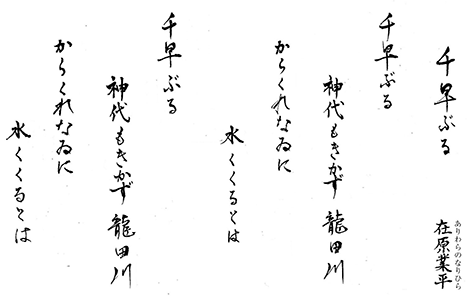 千早ぶる 在原業平
ありわらのなりひら
千早ぶる
神代もきかず 龍田川
からくれなゐに
水くくるとは
千早ぶる
神代もきかず 龍田川
からくれなゐに
水くくるとは